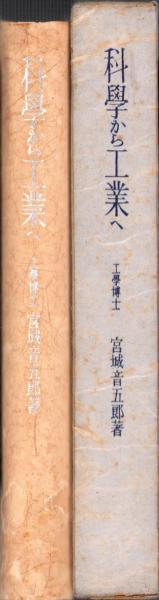 科學から工業へ
工學博士
宮城音五郎著
科學から工業へ
工學博士
宮城音五郎著